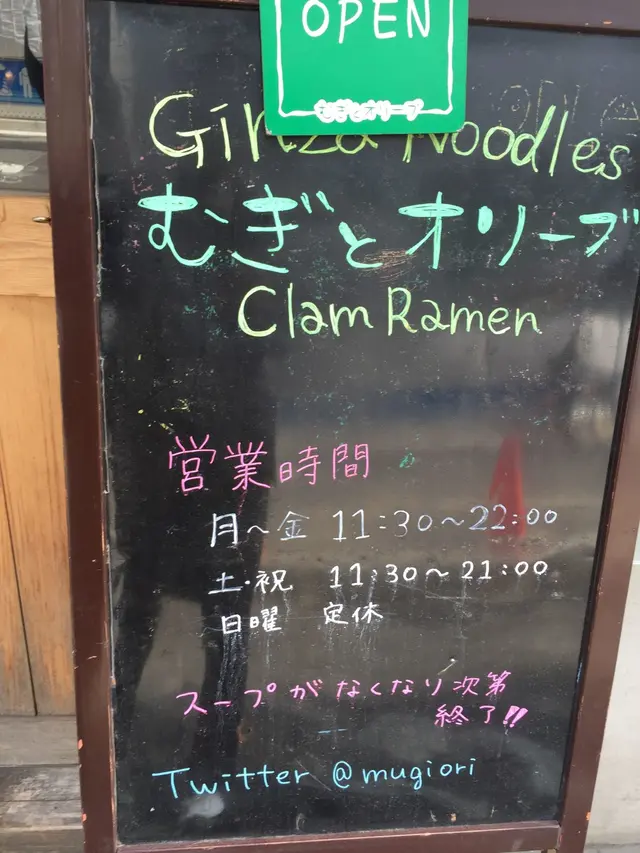 OPEN
むぎとオリーブ
Ginza Noodles
むぎとオリーブ
Clam Ramen
営業時間
月~金 11:30~22:00
土・祝 11:30~21:00
日曜 定休
スープがなくなり次第
終了!!
Twitter @mugiori